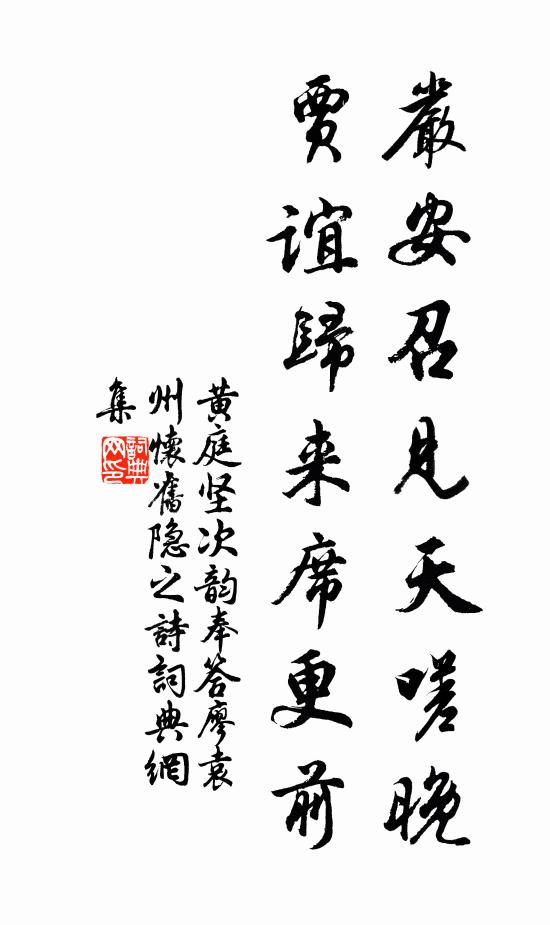 嚴安召見天嗟晚
賈誼歸来席更前
黄庭坚次韵奉答廖袁
州懷舊隐之詩詞典網
集
詞典
网印